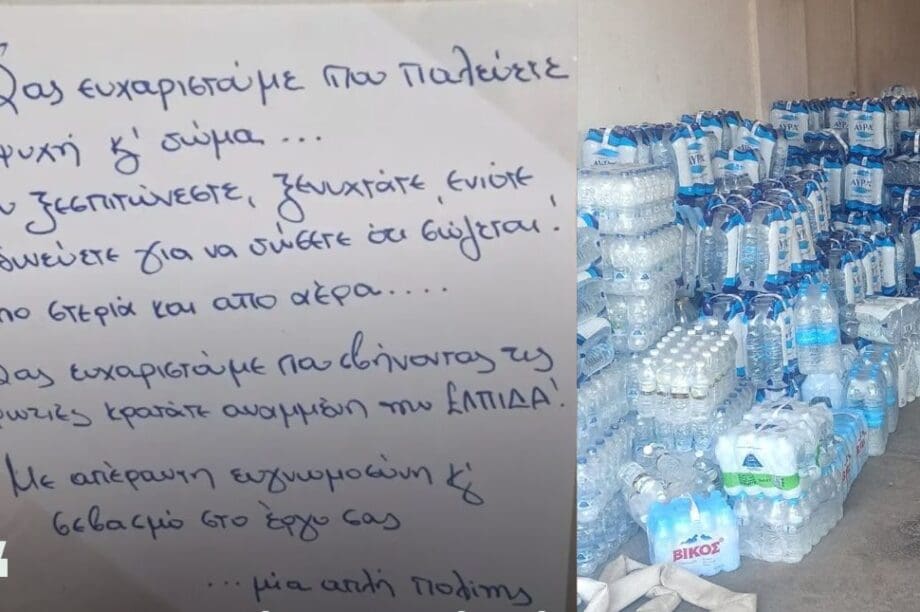 Σας ευχαριστούμε που παλεύετε
ψυχή κ' σώμα...
ξεσπιτώνεστε, ξενυχτάτε, ενίοτε
δυνεύετε για να σώσετε ότι σώζεται!
στεριά και από αέρα....
Σας ευχαριστούμε που σβήνοντας τις
φωτιές κρατάτε αναμμένη την ΕΛΠΙΔΑ!
Με απέραντη ευγνωμοσύνη κ'
σεβασμό στο έργο σας
...μία απλή πολίτης
ΑΥΡΑ
ΑΥΡΑ
ΑΥΡΑ
ΒΙΚΟΣ